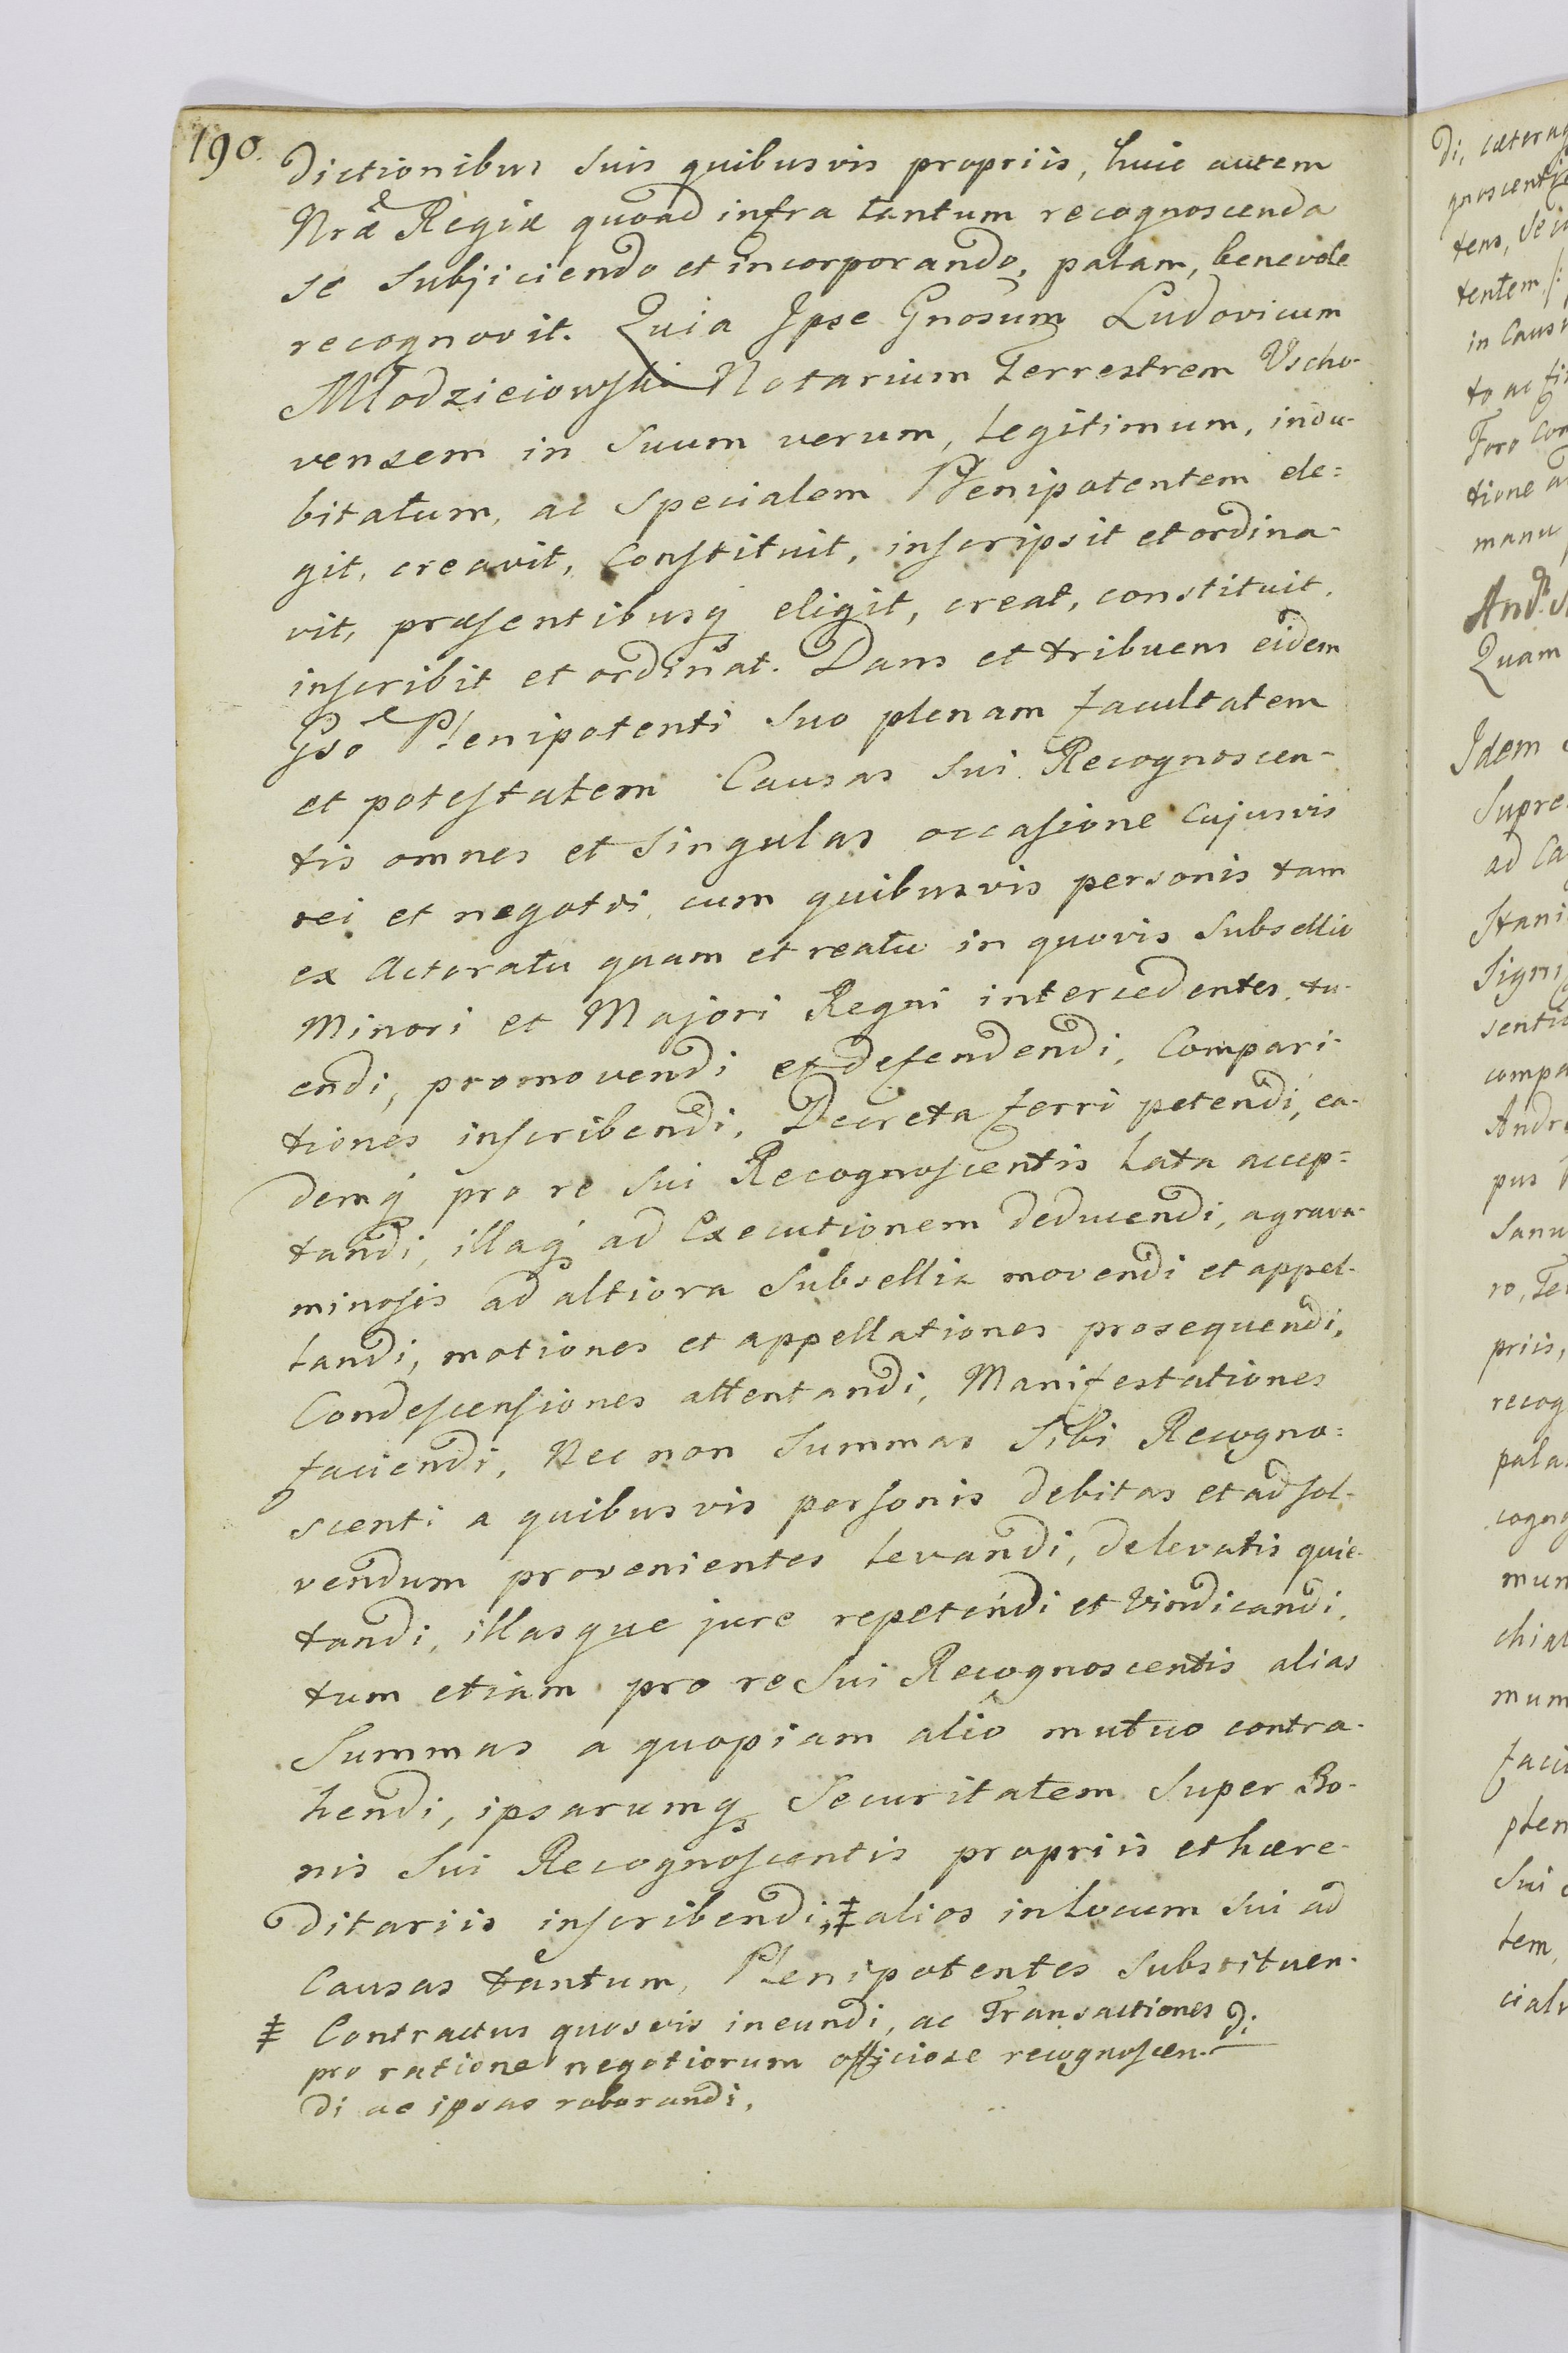 190.
Dictionibus suis quibusvis propriis, huic autem
Nrae Regiae quoad infra tantum recognoscenda
se subjiciendo et incorporando, palam, benevole
recognovit. Quia Ipse Gnosum Ludovicum
Młodzieiowski Notarium Terrestrem Vscho-
vensem in suum verum, legitimum, indu-
bitatum, ac specialem Plenipotentem ele=
git, creavit, constituit, inscripsit et ordina-
vit, praesentibusq eligit, creat, constituit,
inscribit et ordinat. Dans et tribuens eidem
Gso Plenipotenti suo plenam facultatem
et potestatem Causas sui Recognoscen-
tis omnes et singulas occasione cujusvis
rei et negotii, cum quibusvis personis tam
ex Actoratu quam et reatu in quovis Subsellio
Minori et Majori Regni intercedentes, tu-
endi, promovendi et defendendi, Compari-
tiones inscribendi, Decreta ferri petendi, ea-
demq pro re sui Recognoscentis lata accep=
tandi, illaq ad Executionem deducendi, a grava-
minosis ad altiora Subsellia movendi et appel-
landi, motiones et appellationes prosequendi,
Condescensiones attentandi, Manifestationes
faciendi, Nec non Summas sibi Recogno=
scenti a quibusvis personis debitas et ad sol-
vendum provenientes levandi, de levatis quie-
tandi, illasque jure repetendi et vindicandi,
tum etiam pro re sui Recognoscentis alias
Summas a quopiam alio mutuo contra-
hendi, ipsarumq Securitatem super Bo-
nis sui Recognoscentis propriis et haere-
ditariis inscribendi, ‡ alios in locum sui ad
Causas tantum, Plenipotentes substituen-
di
‡ Contractus quosvis ineundi, ac Transactiones
pro ratione negotiorum officiose recognoscen-
di ac ipsas roborandi,
di, caetera
tentem
in Caus
to ac
Foro
tione
manu
Quam
Idem
Supre
ad Ca
Stani
Signi
senti
compa
Andr
pus
Sanu
ro, Te
priis,
recog
pala
cogno
mun
chia
mum
faci
plen
Sui
tem,
cial